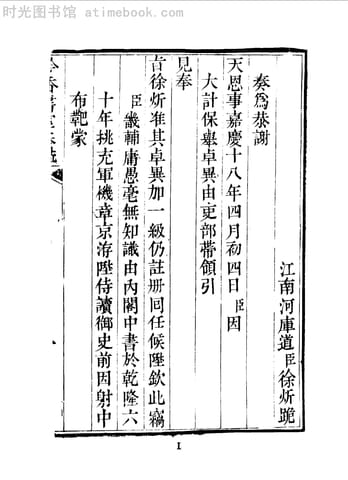 时光图书馆 atimebook.com
江南河庫道臣徐炘跪
奏爲恭謝
天恩事嘉慶十八年四月初四日臣因
大計保舉卓異由吏部帶領引
見奉
旨徐炘准其卓異加一級仍註册囘任候陞欽此竊
臣畿輔庸愚毫無知識由內閣中書於乾隆六
十年挑充軍機章京洊陞侍讀御史前因射中
布靶蒙
1